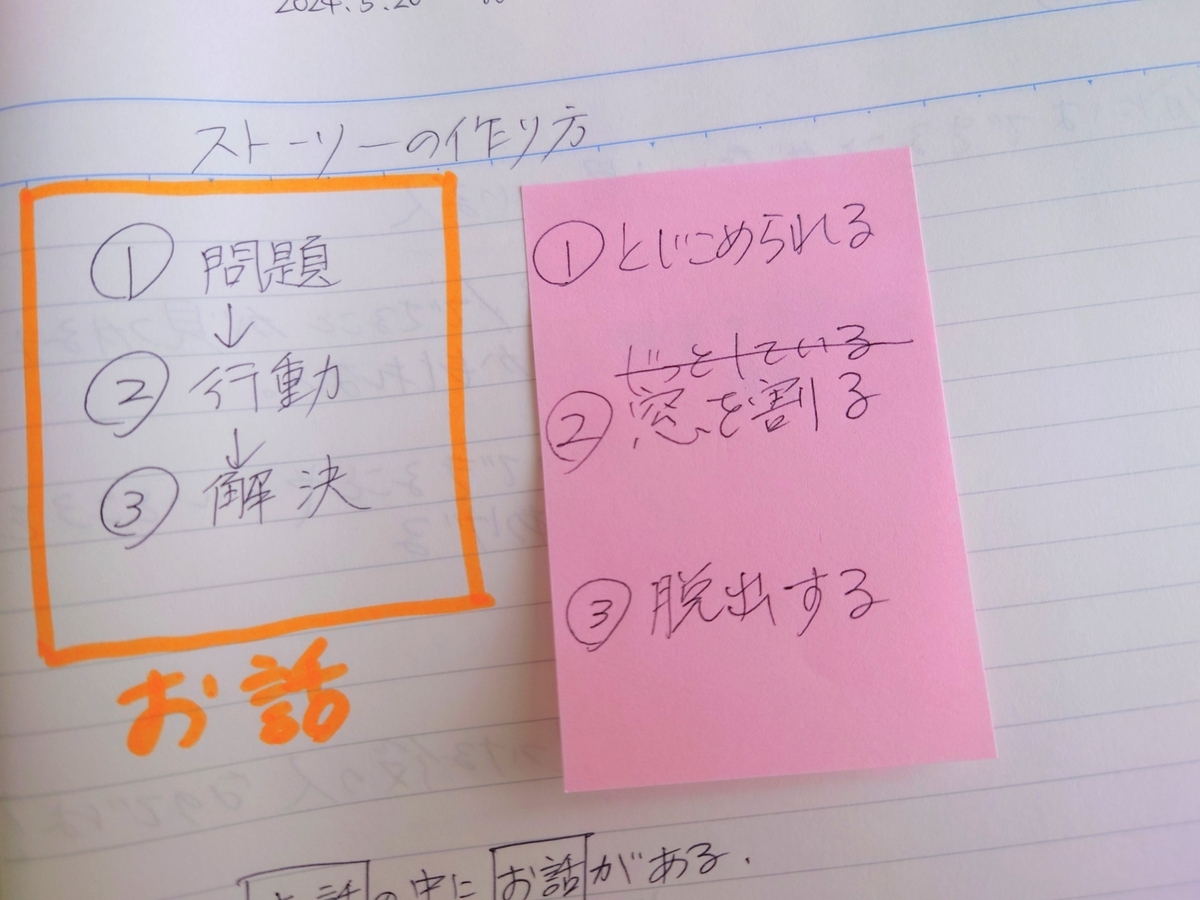 2024.5.20
ストーリーの作り方
① 問題
↓
② 行動
↓
③ 解決
お話
① とじこめられる
じっとしている
② 窓を割る
③ 脱出する
お話の中にお話がある.